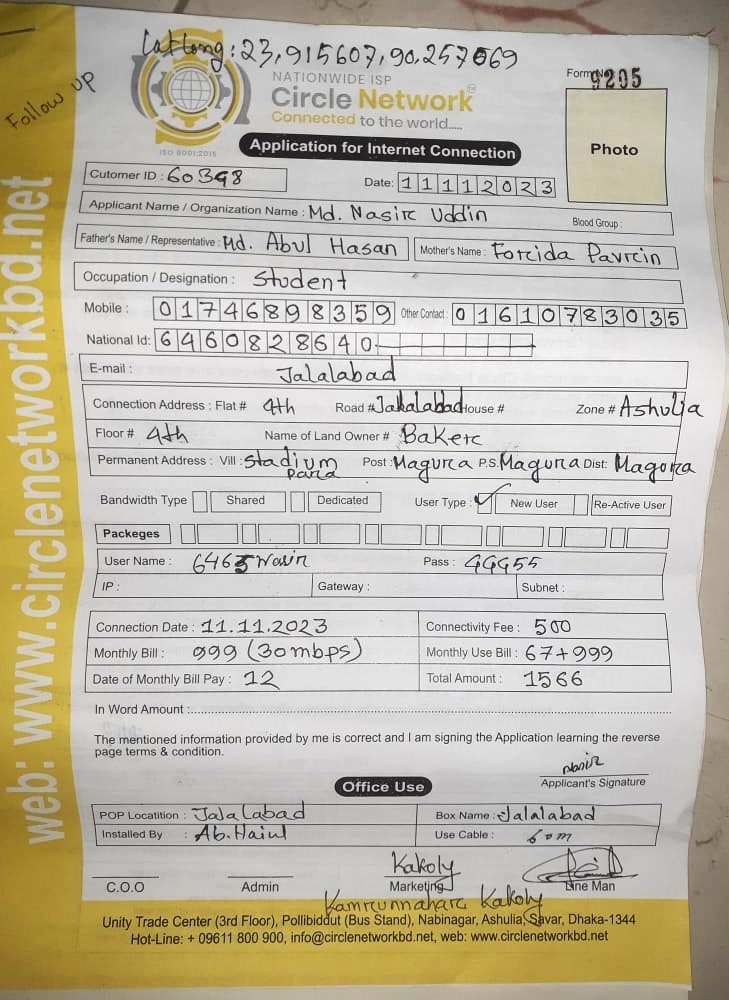 LatLong: 23,915607,90.257069
Follow up
NATIONWIDE ISP
Circle Network
Connected to the world.....
ISO 9001:2015
Form No 9205
Photo
Application for Internet Connection
Cutomer ID : 60398
Date: 11112023
Applicant Name / Organization Name : Md. Nasir Uddin
Blood Group :
Father's Name / Representative : Md. Abul Hasan Mother's Name : Forida Pavrcin
Occupation / Designation : Student
Mobile : 01746898359 Other Contact : 01610783035
National Id: 6460828640
E-mail : Jalalabad
Connection Address : Flat # 4th Road # Jalalabad House # Zone # Ashulia
Floor # 4th Name of Land Owner # Baker
Permanent Address : Vill : Stadium Para Post : Magura P.S. Magura Dist: Magura
Bandwidth Type Shared Dedicated User Type : ✓ New User Re-Active User
Packeges
User Name : 6465nasir Pass : 44455
IP : Gateway : Subnet :
Connection Date : 11.11.2023 Connectivity Fee : 500
Monthly Bill : 999 (30mbps) Monthly Use Bill : 67+999
Date of Monthly Bill Pay : 12 Total Amount : 1566
In Word Amount :
The mentioned information provided by me is correct and I am signing the Application learning the reverse
page terms & condition.
Nasir
Applicant's Signature
Office Use
POP Locatition : Jalalabad Box Name : Jalalabad
Installed By : Ab. Use Cable : 60m
Kakoly
C.O.O Admin Marketing Line Man
Kamrunnahar Kakoly
Unity Trade Center (3rd Floor), Pollibiddut (Bus Stand), Nabinagar, Ashulia, Savar, Dhaka-1344
Hot-Line: + 09611 800 900, info@circlenetworkbd.net, web: www.circlenetworkbd.net
web: www.circlenetworkbd.net